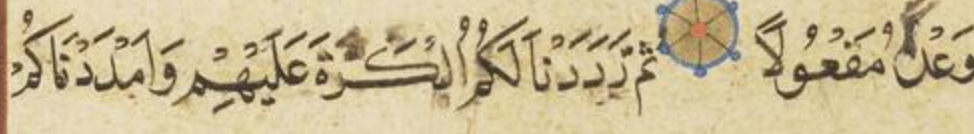 وَعْدًا مَفْعُولًا ثُمَّ رَدَدْنَا لَكُمُ الْكَرَّةَ عَلَيْهِمْ وَأَمْدَدْنَاكُمْ